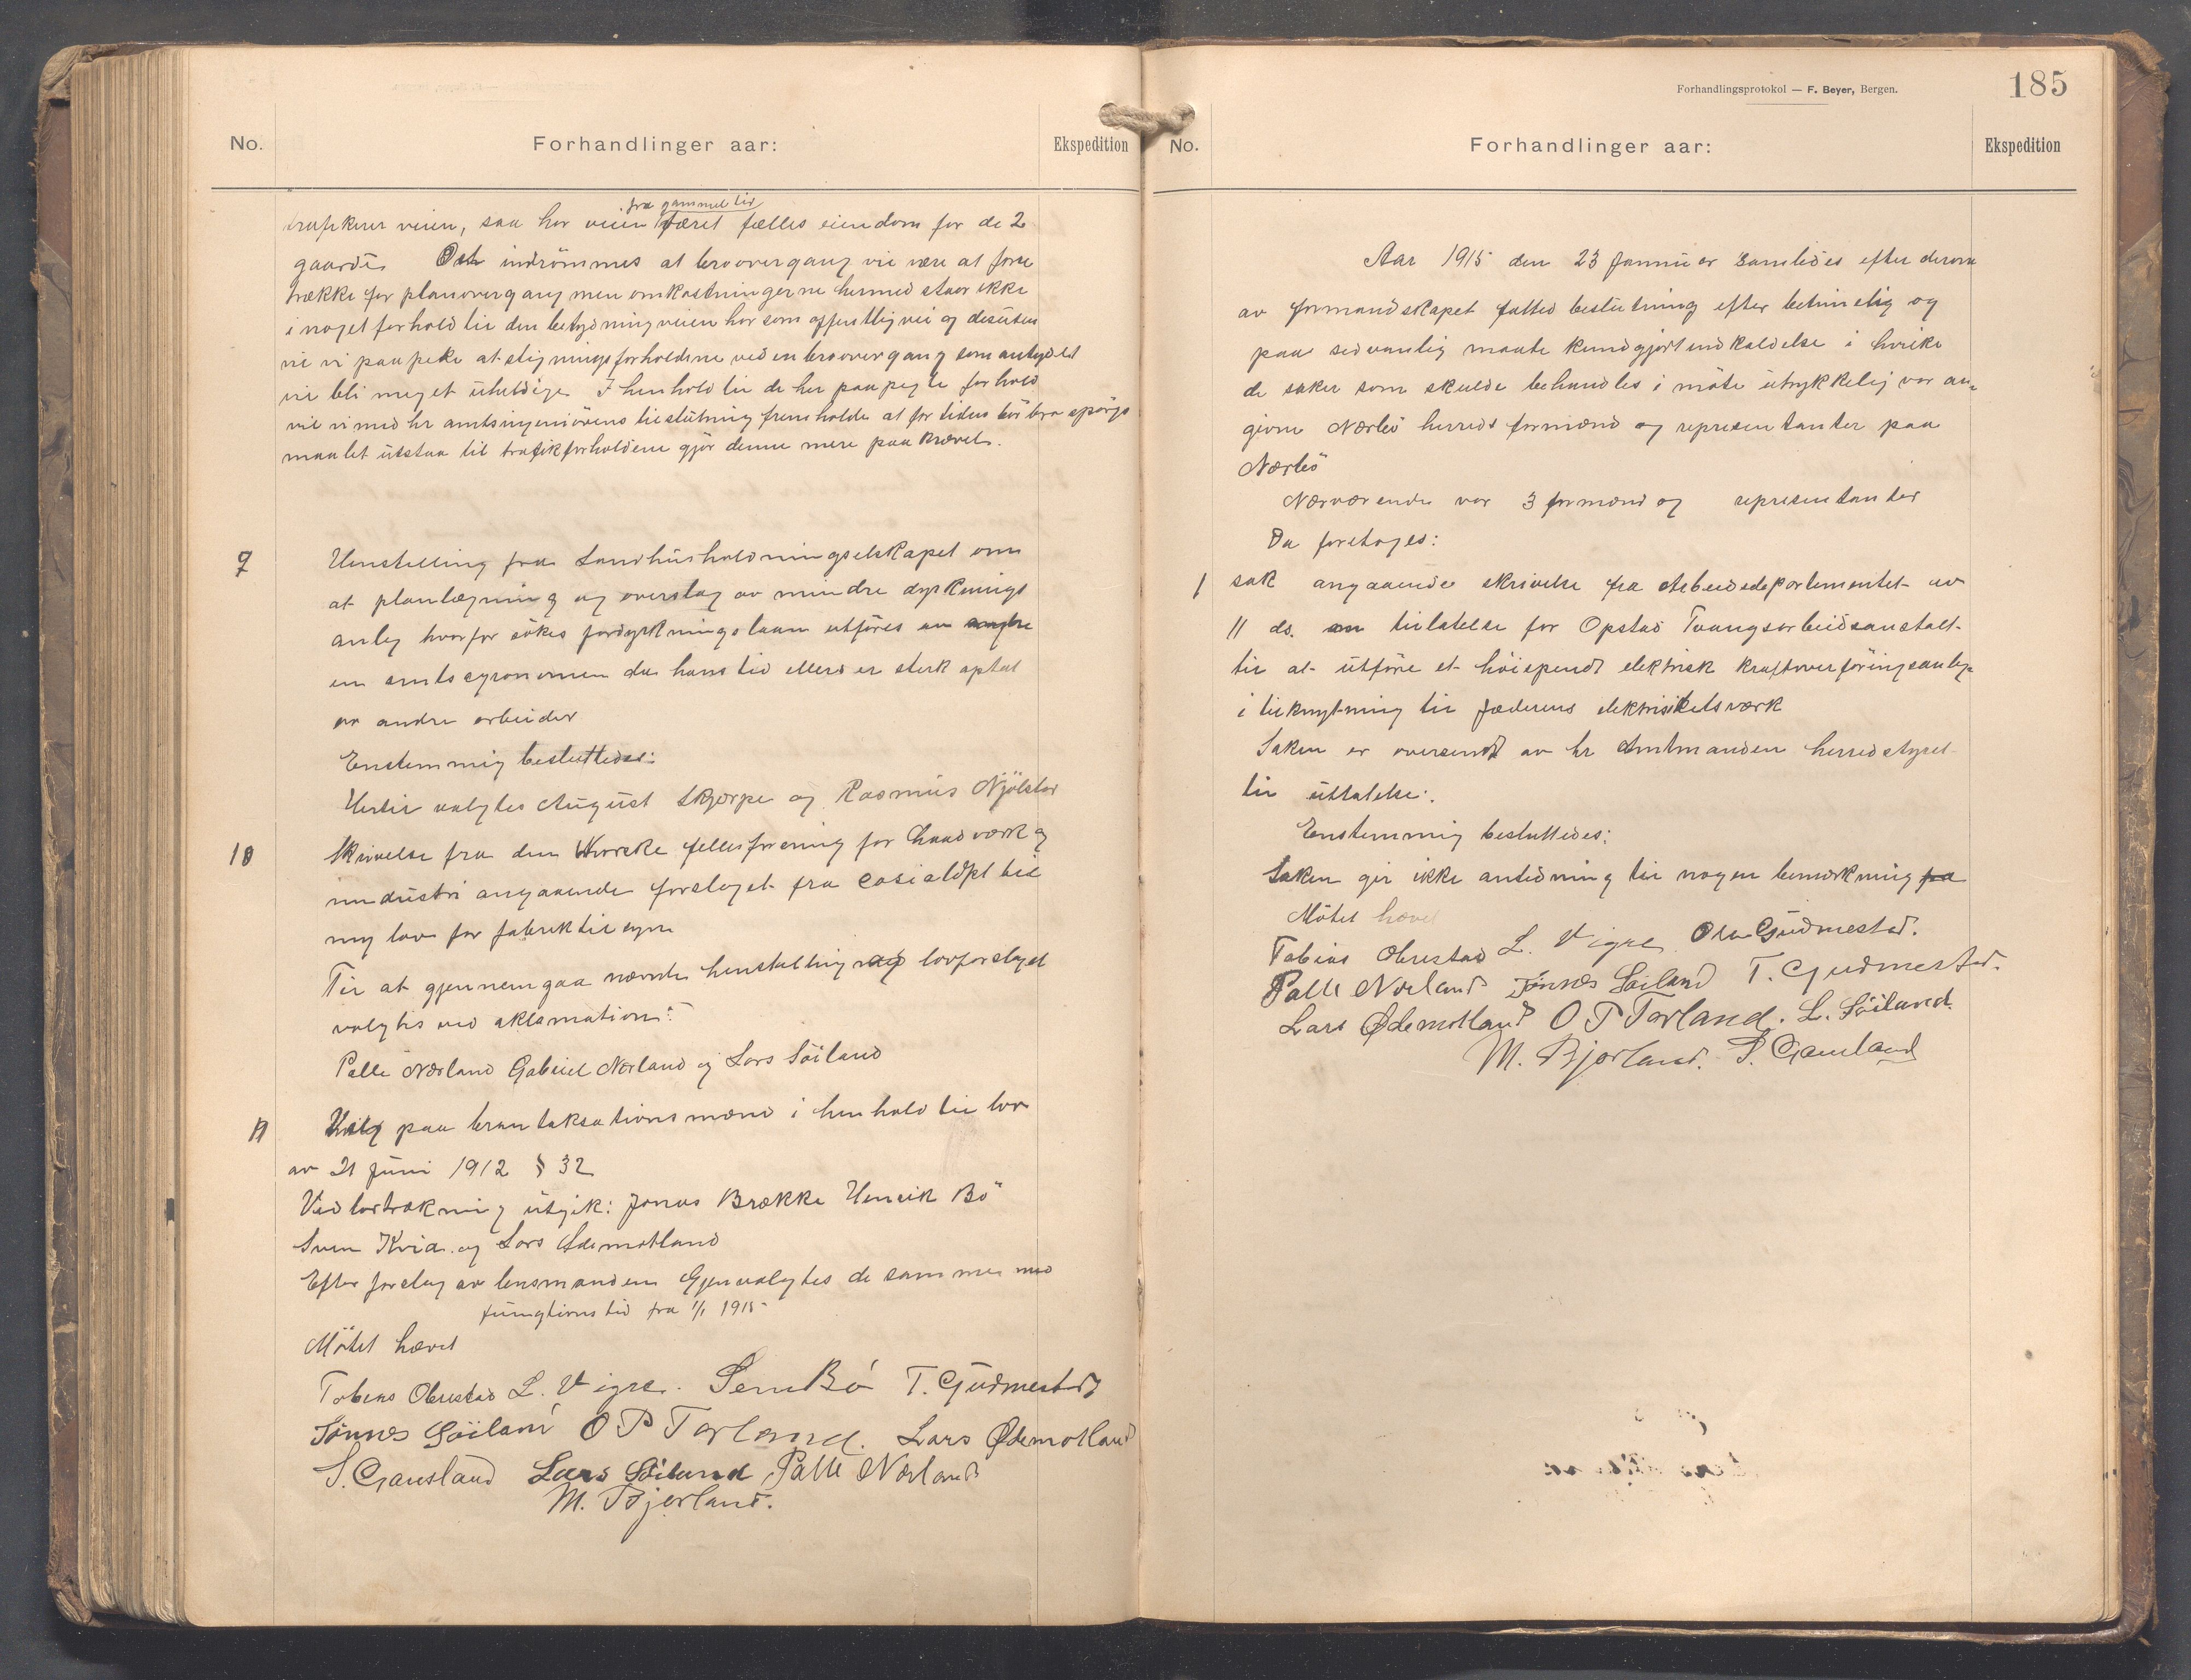 No.
Forhandlinger aar:
Ekspedition
fra gammel tid
trafikerer veien, saa har veien været fælles eiendom for de 2
gaarde. Det indrömmes at broovergang vil være at fore
trække for planovergang men omkostningerne hermed staar ikke
i noget forhold til den betydning veien har som offentlig vei og desuten
vil vi paapeke at stigningsforholdene ved en broovergang som antydet
vil bli meget uheldige. I henhold til de her paapegte forhold
vil vi med hr amtsingeniörens tilslutning fremholde at for tiden bör bro spörgs
maalet utstaa til trafikforholdene gjör denne mere paakrævet.
9
Henstilling fra Landhusholdningselskapet om
at planlægning og overslag av mindre dyrknings
anleg hvorfor sökes jordyrkningslaan utföres av
en amtsagronomen da hans tid ellers er sterk optat
av andre arbeider
Enstemmig besluttedes:
Hertil valgtes August Skjærpe og Rasmus Njölstad
10
Skrivelse fra den Norske fellesforening for haandværk og
industri angaaende forslaget fra Socialdpt til
ny lov for fabriktilsyn
Til at gjennemgaa nævnte henstilling og lovforslaget
valgtes ved aklamation:
Palle Nærland Gabriel Nærland og Lars Söiland
11
Valg paa brantaksationsmænd i henhold til lov
av 21 Juni 1912 § 32
Ved lodtrækning utgik: Jonas Brække Henrik Bö
Sven Kvia og Lars Ødemotland
Efter forslag av lensmanden Gjenvalgtes de samme med
fungtionstid fra 1/1 1915
Mötet hævet
Tobias Obrestad L. Vigre. Sem Bö T. Gudmestad
Jönnes Söiland O P Torland. Lars Ødemotland
S. Gausland Lars Söiland Palle Nærland
M. Bjorland.
Forhandlingsprotokol — F. Beyer, Bergen.
185
No.
Forhandlinger aar:
Ekspedition
Aar 1915 den 23 Januar samledes efter derom
av formandskapet fatted beslutning efter betimelig og
paa sedvanlig maate kundgjort indkaldelse i hvilke
de saker som skulde behandles i möte utrykkelig var an-
givne Nærbö herreds formænd og representanter paa
Nærbö
Nærværende var 3 formænd og representanter
Da foretoges:
1 sak angaaende skrivelse fra Arbeidsdepartementet av
11 ds. om tilatelse for Opstad Tvangsarbeidsanstalt
til at utföre et höispendt elektrisk kraftoverföringsanleg
i tilknytning til Jæderens elektrisitetsværk
Saken er oversendt av hr Amtmanden herredstyret
til uttalelse.
Enstemmig besluttedes:
Saken gir ikke anledning til nogen bemærkning fra
Mötet hævet
Tobias Obrestad L. Vigre Ola Gudmestad.
Palle Nærland Jönnes Söiland T. Gudmestad.
Lars Ødemotland O P Torland. L. Söiland.
M. Bjorland. S. Gausland